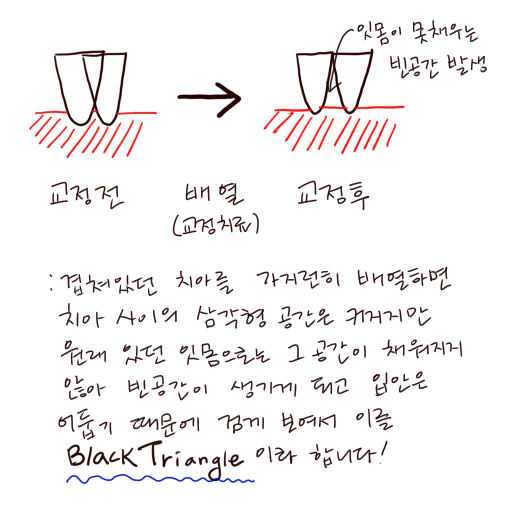 잇몸이 못채우는
빈공간 발생
교정전
배열
(교정치료)
교정후
: 겹쳐있던 치아를 가지런히 배열하면
치아 사이의 삼각형 공간은 커지지만
원래 있던 잇몸으로는 그 공간이 채워지지
않아 빈공간이 생기게 되고 입안은
어둡기 때문에 검게 보여서 이를
Black Triangle 이라 합니다!